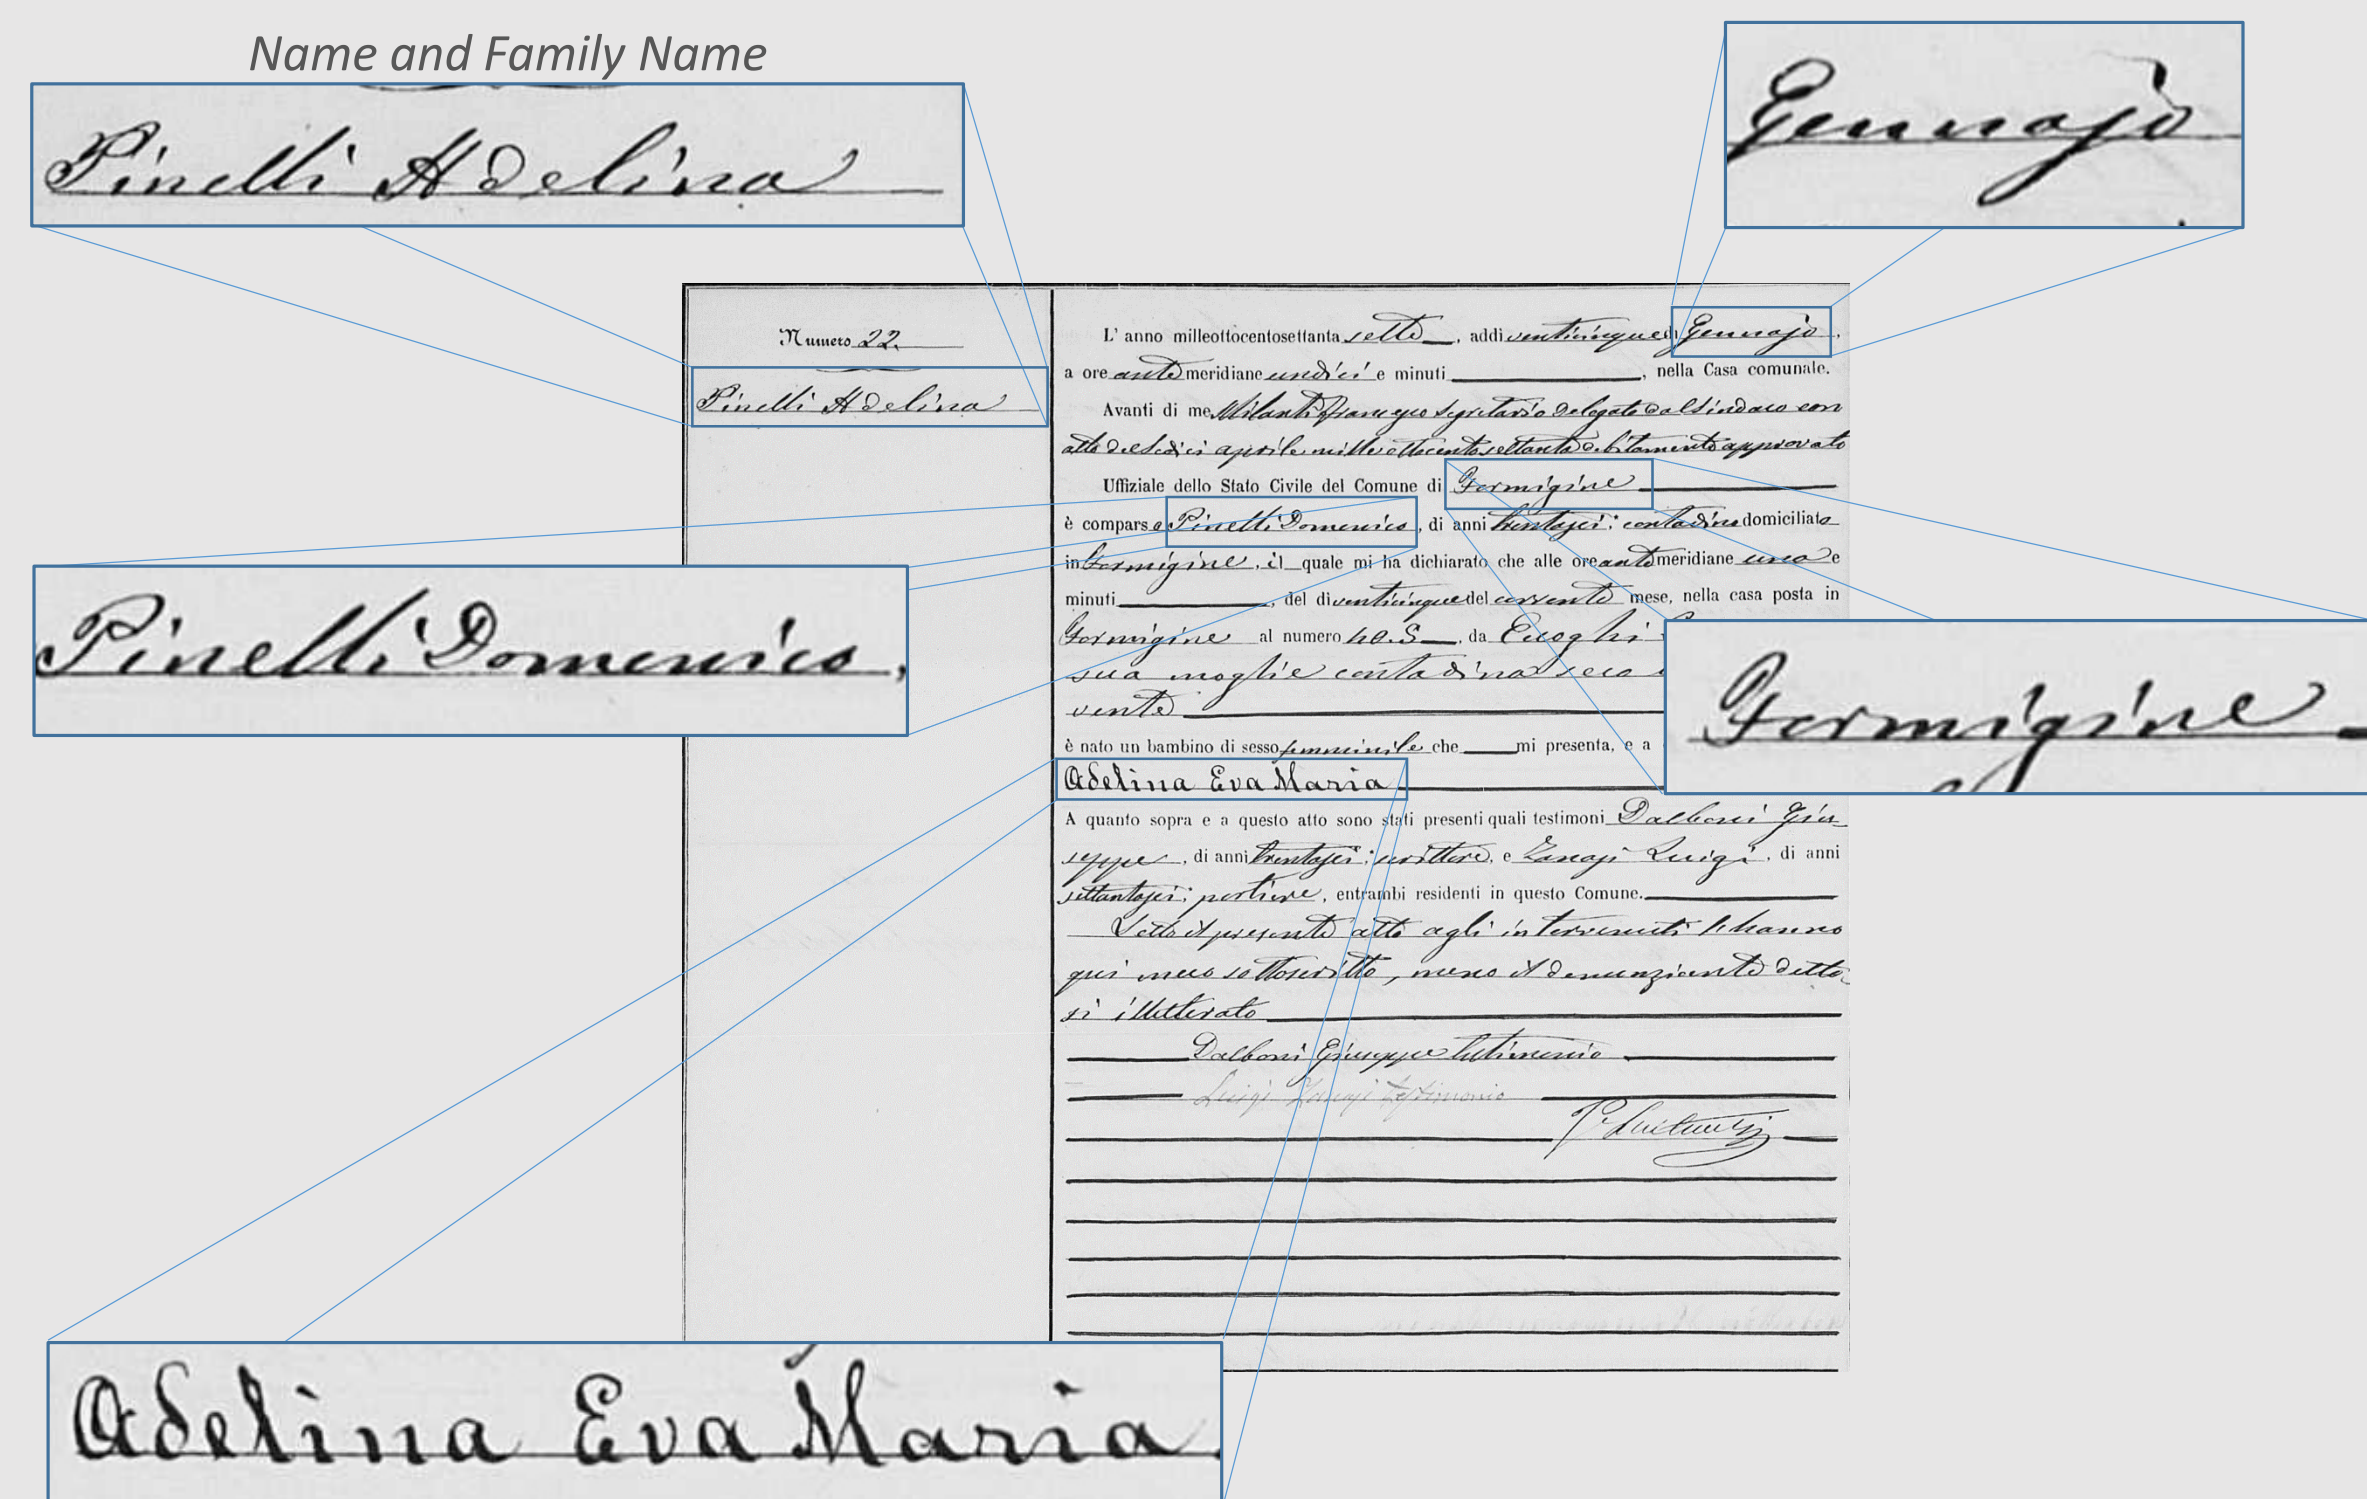 Name and Family Name
Pinelli Adelina
Gennajo
Numero 22.
Pinelli Adelina
L' anno milleottocentosettanta sette, addi venticinque di Gennajo,
a ore ante meridiane undici e minuti, nella Casa comunale.
Avanti di me Milanti Francesco Segretario delegato dal Sindaco con
atto del sedici aprile mille ottocento settanta debitamente approvato
Uffiziale dello Stato Civile del Comune di Formigine
è comparso Pinelli Domenico, di anni trentasei; contadino domiciliato
in Formigine, il quale mi ha dichiarato che alle ore ante meridiane una e
minuti, del di venticinque del corrente mese, nella casa posta in
Formigine al numero 40.S, da Cuoghi
sua moglie contadina seco
vente
è nato un bambino di sesso femminile che mi presenta, e a
Adelina Eva Maria
A quanto sopra e a questo atto sono stati presenti quali testimoni Dalboni Giu-
seppe, di anni trentasei; scrittore, e Zanasi Luigi, di anni
settantasei; portiere, entrambi residenti in questo Comune.
Letto il presente atto agli intervenuti l'hanno
qui meco sottoscritto, meno il denunziante detto-
si illetterato
Dalboni Giuseppe testimonio
Luigi Zanasi testimonio
Pinelli Domenico,
Formigine
Adelina Eva Maria